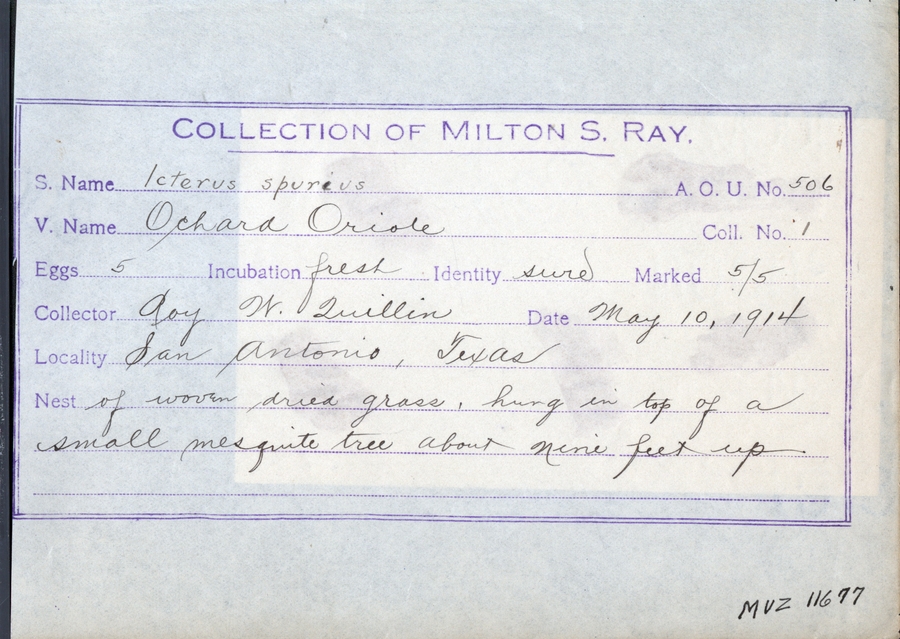 COLLECTION OF MILTON S. RAY.
S. Name Icterus spurius A. O. U. No. 506
V. Name Ochard Oriole Coll. No. 1
Eggs 5 Incubation fresh Identity sure Marked 5/5
Collector Roy W. Quillin Date May 10, 1914
Locality San Antonio, Texas
Nest of woven dried grass, hung in top of a
small mesquite tree about nine feet up
MVZ 11677